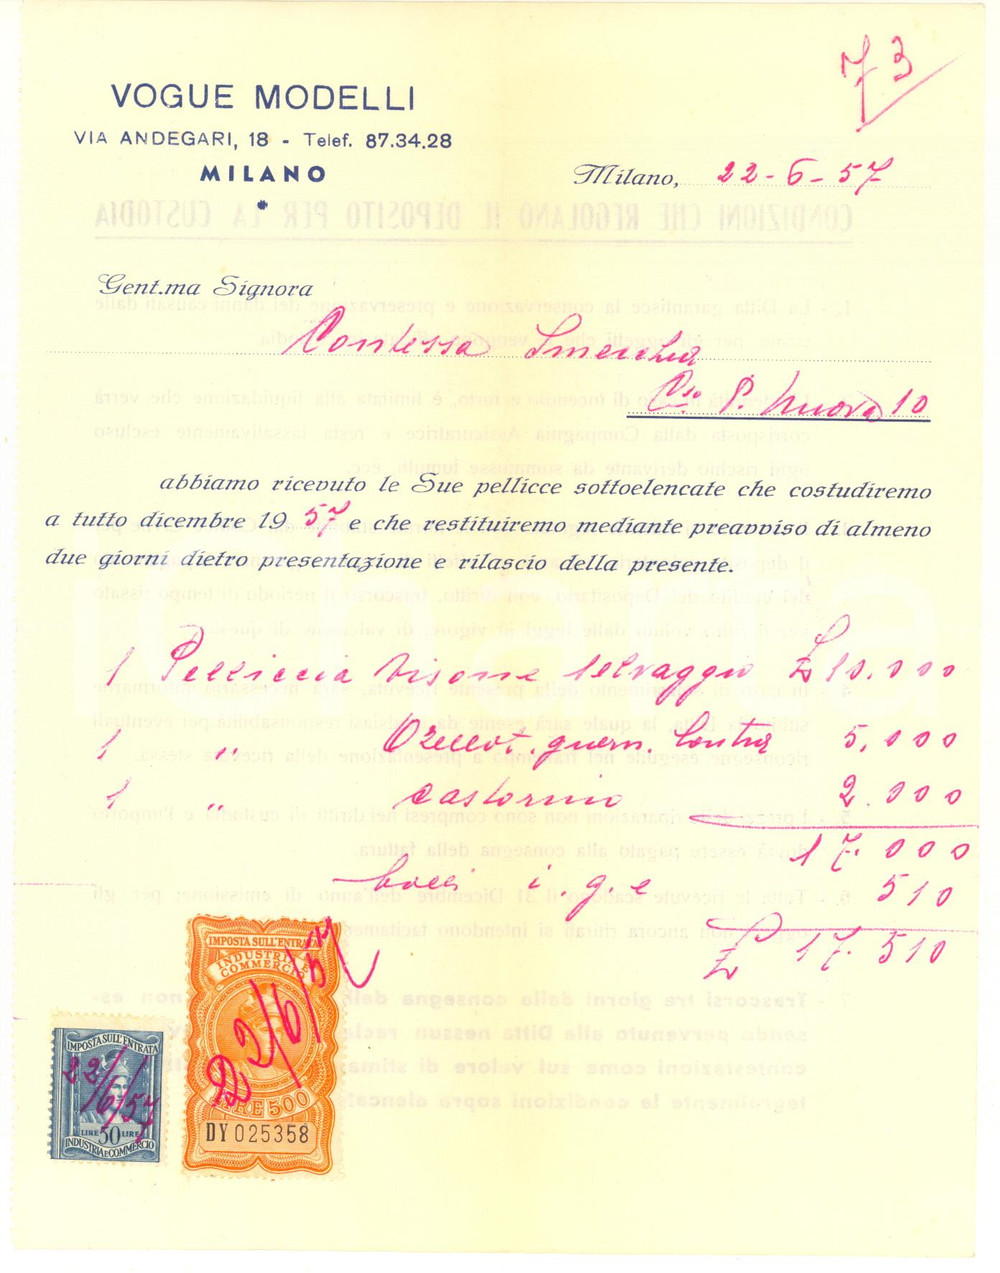 73
VOGUE MODELLI
VIA ANDEGARI, 18 - Telef. 87.34.28
MILANO
Milano, 22-6-57
Gent.ma Signora
Contessa
C.so P. Nuova 10
abbiamo ricevuto le Sue pellicce sottoelencate che costudiremo
a tutto dicembre 1957 e che restituiremo mediante preavviso di almeno
due giorni dietro presentazione e rilascio della presente.
1 Pelliccia Visone selvaggio £ 10.000
1 " guarn. Lontra 5.000
1 " castorino 2.000
17.000
bolli i.g.e 510
£ 17.510
IMPOSTA SULL'ENTRATA
INDUSTRIA E COMMERCIO
22/6/57
LIRE 500
DY 025358
IMPOSTA SULL'ENTRATA
22/6/57
LIRE 50 LIRE
INDUSTRIA E COMMERCIO